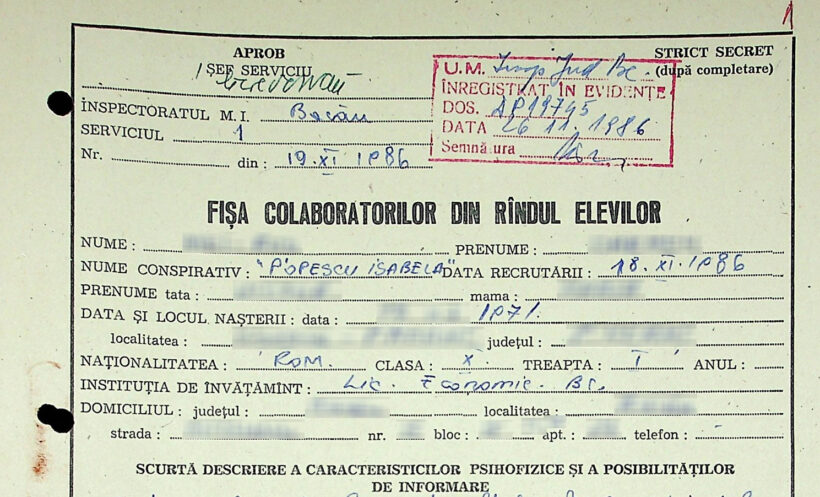 1
APROB
STRICT SECRET
ȘEF SERVICIU
(după completare)
U.M. Insp Jud Bc.
ÎNREGISTRAT ÎN EVIDENȚE
DOS. AP19745
DATA 26 11. 1986
Semnătura
INSPECTORATUL M. I. Bacău
SERVICIUL 1
Nr. din : 19. XI 1986
FIȘA COLABORATORILOR DIN RÎNDUL ELEVILOR
NUME : PRENUME :
NUME CONSPIRATIV : "POPESCU ISABELA" DATA RECRUTĂRII : 18. XI. 1986
PRENUME tata : mama :
DATA ȘI LOCUL NAȘTERII : data : 1971.
localitatea : județul :
NAȚIONALITATEA : ROM. CLASA : X TREAPTA : I ANUL :
INSTITUȚIA DE ÎNVĂȚĂMÎNT : Lic. Economic. Bc.
DOMICILIUL : județul : localitatea :
strada : nr. bloc : apt. : telefon :
SCURTĂ DESCRIERE A CARACTERISTICILOR PSIHOFIZICE ȘI A POSIBILITĂȚILOR
DE INFORMARE